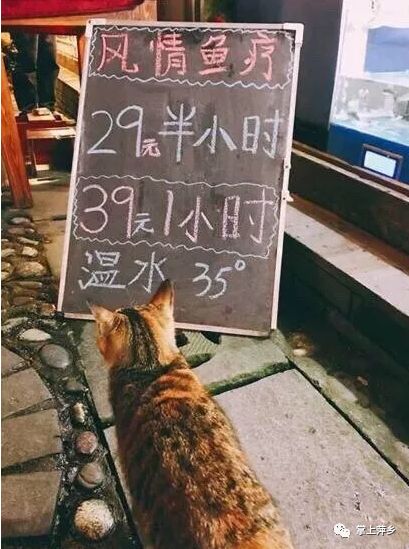 风情鱼疗
29元半小时
39元1小时
温水 35°
掌上萍乡